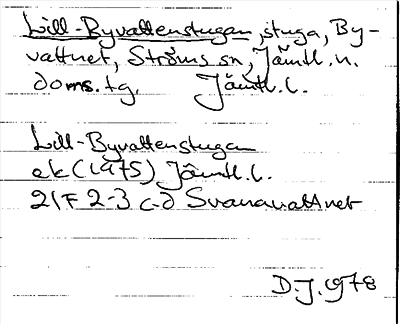 Lill-Byvattenstugan, stuga, By-
vattnet, Ströms sn, Jämtl. n.
doms. tg. Jämtl. l.
Lill-Byvattenstugan
ek (1975) Jämtl. l.
21F 2-3 c-d Svanavattnet
D.J. 1978